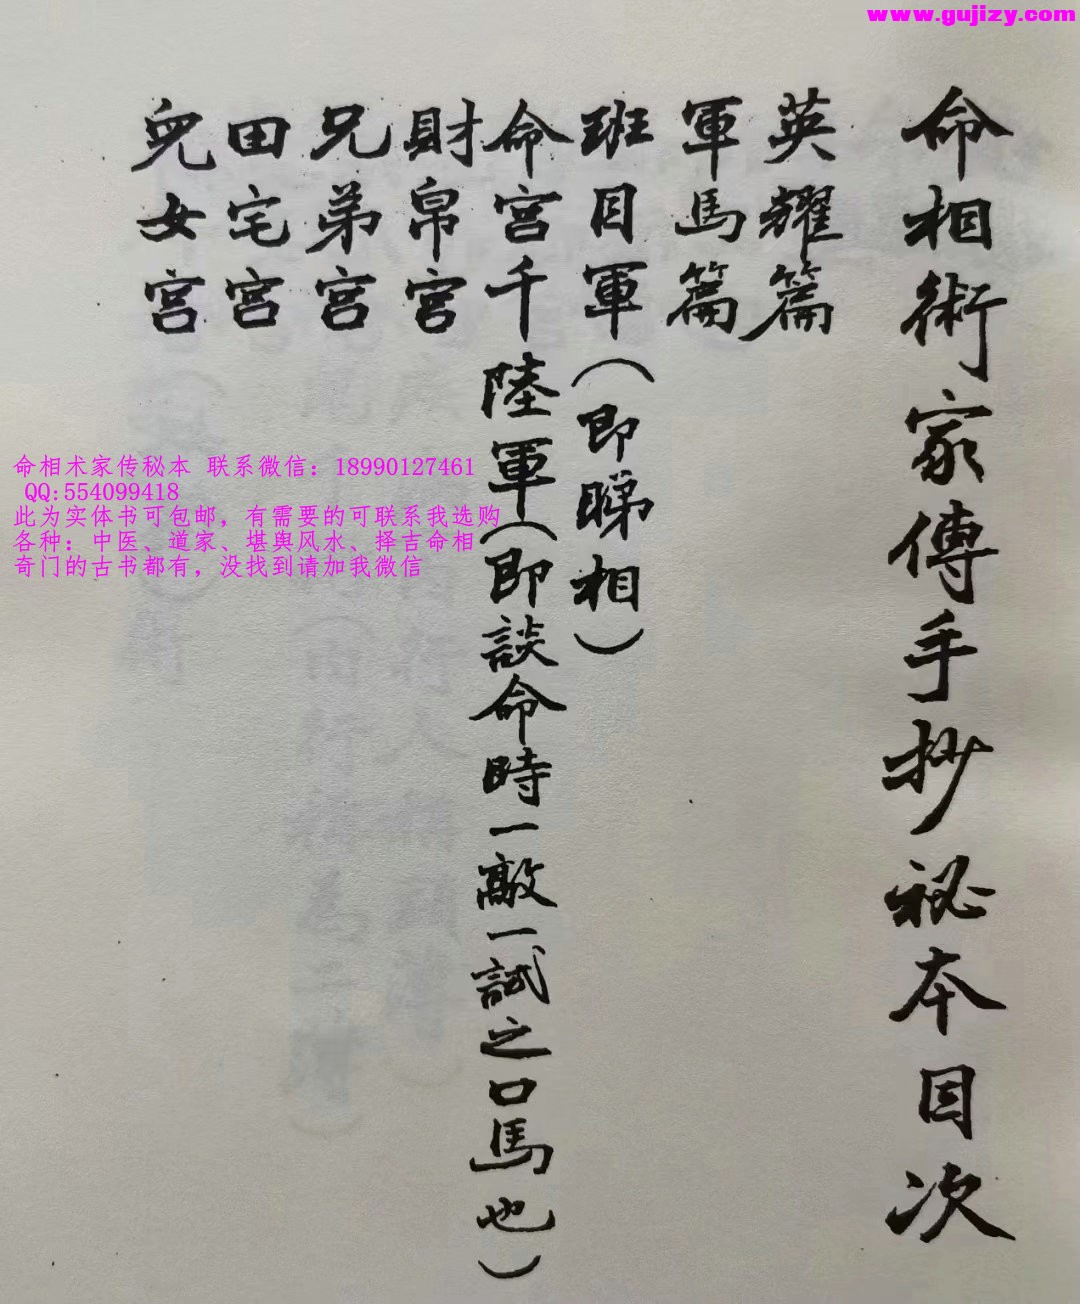 www.gujizy.com
命相術家傳手抄秘本目次
英耀篇
軍馬篇
班目軍(即睇相)
命宮千陸軍(即談命時一敲一試之口馬也)
財帛宮
兄弟宮
田宅宮
兒女宮
命相术家传秘本 联系微信：18990127461
QQ:554099418
此为实体书可包邮，有需要的可联系我选购
各种：中医、道家、堪舆风水、择吉命相
奇门的古书都有，没找到请加我微信